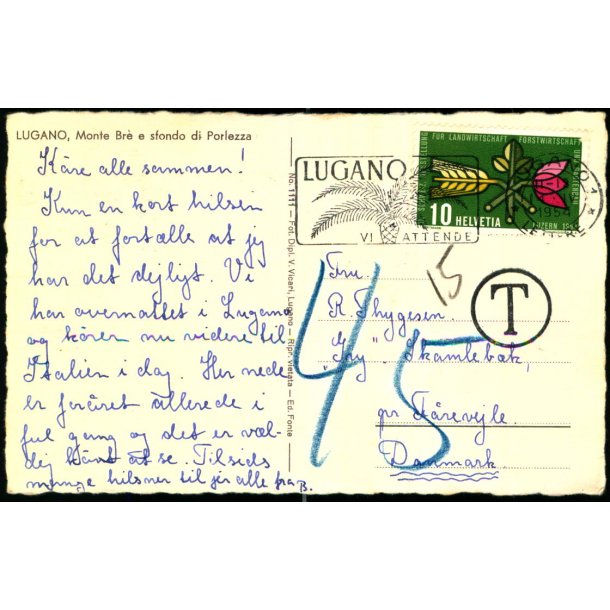 LUGANO, Monte Brè e sfondo di Porlezza
Kære alle sammen!
Kun en kort hilsen
for at fortælle at jeg
har det dejligt. Vi
har overnattet i Lugano
og kører nu videre til
Italien i dag. Her nede
er foråret allerede i
ful gang og det er væl-
dej kønt at se. Tilsids
mange hilsner til jer alle fra B.
No. 1111 — Fot. Dipl. V. Vicari, Lugano — Ripr. vietata — Ed. Fonte
LUGANO
VI ATTENDE
FÜR LANDWIRTSCHAFT FORSTWIRTSCHAFT
10 HELVETIA
LUZERN
1954
LETTERE
15
T
45
Fru
R. Thygesen.
Skamlebæk,
pr Fårevejle
Danmark.